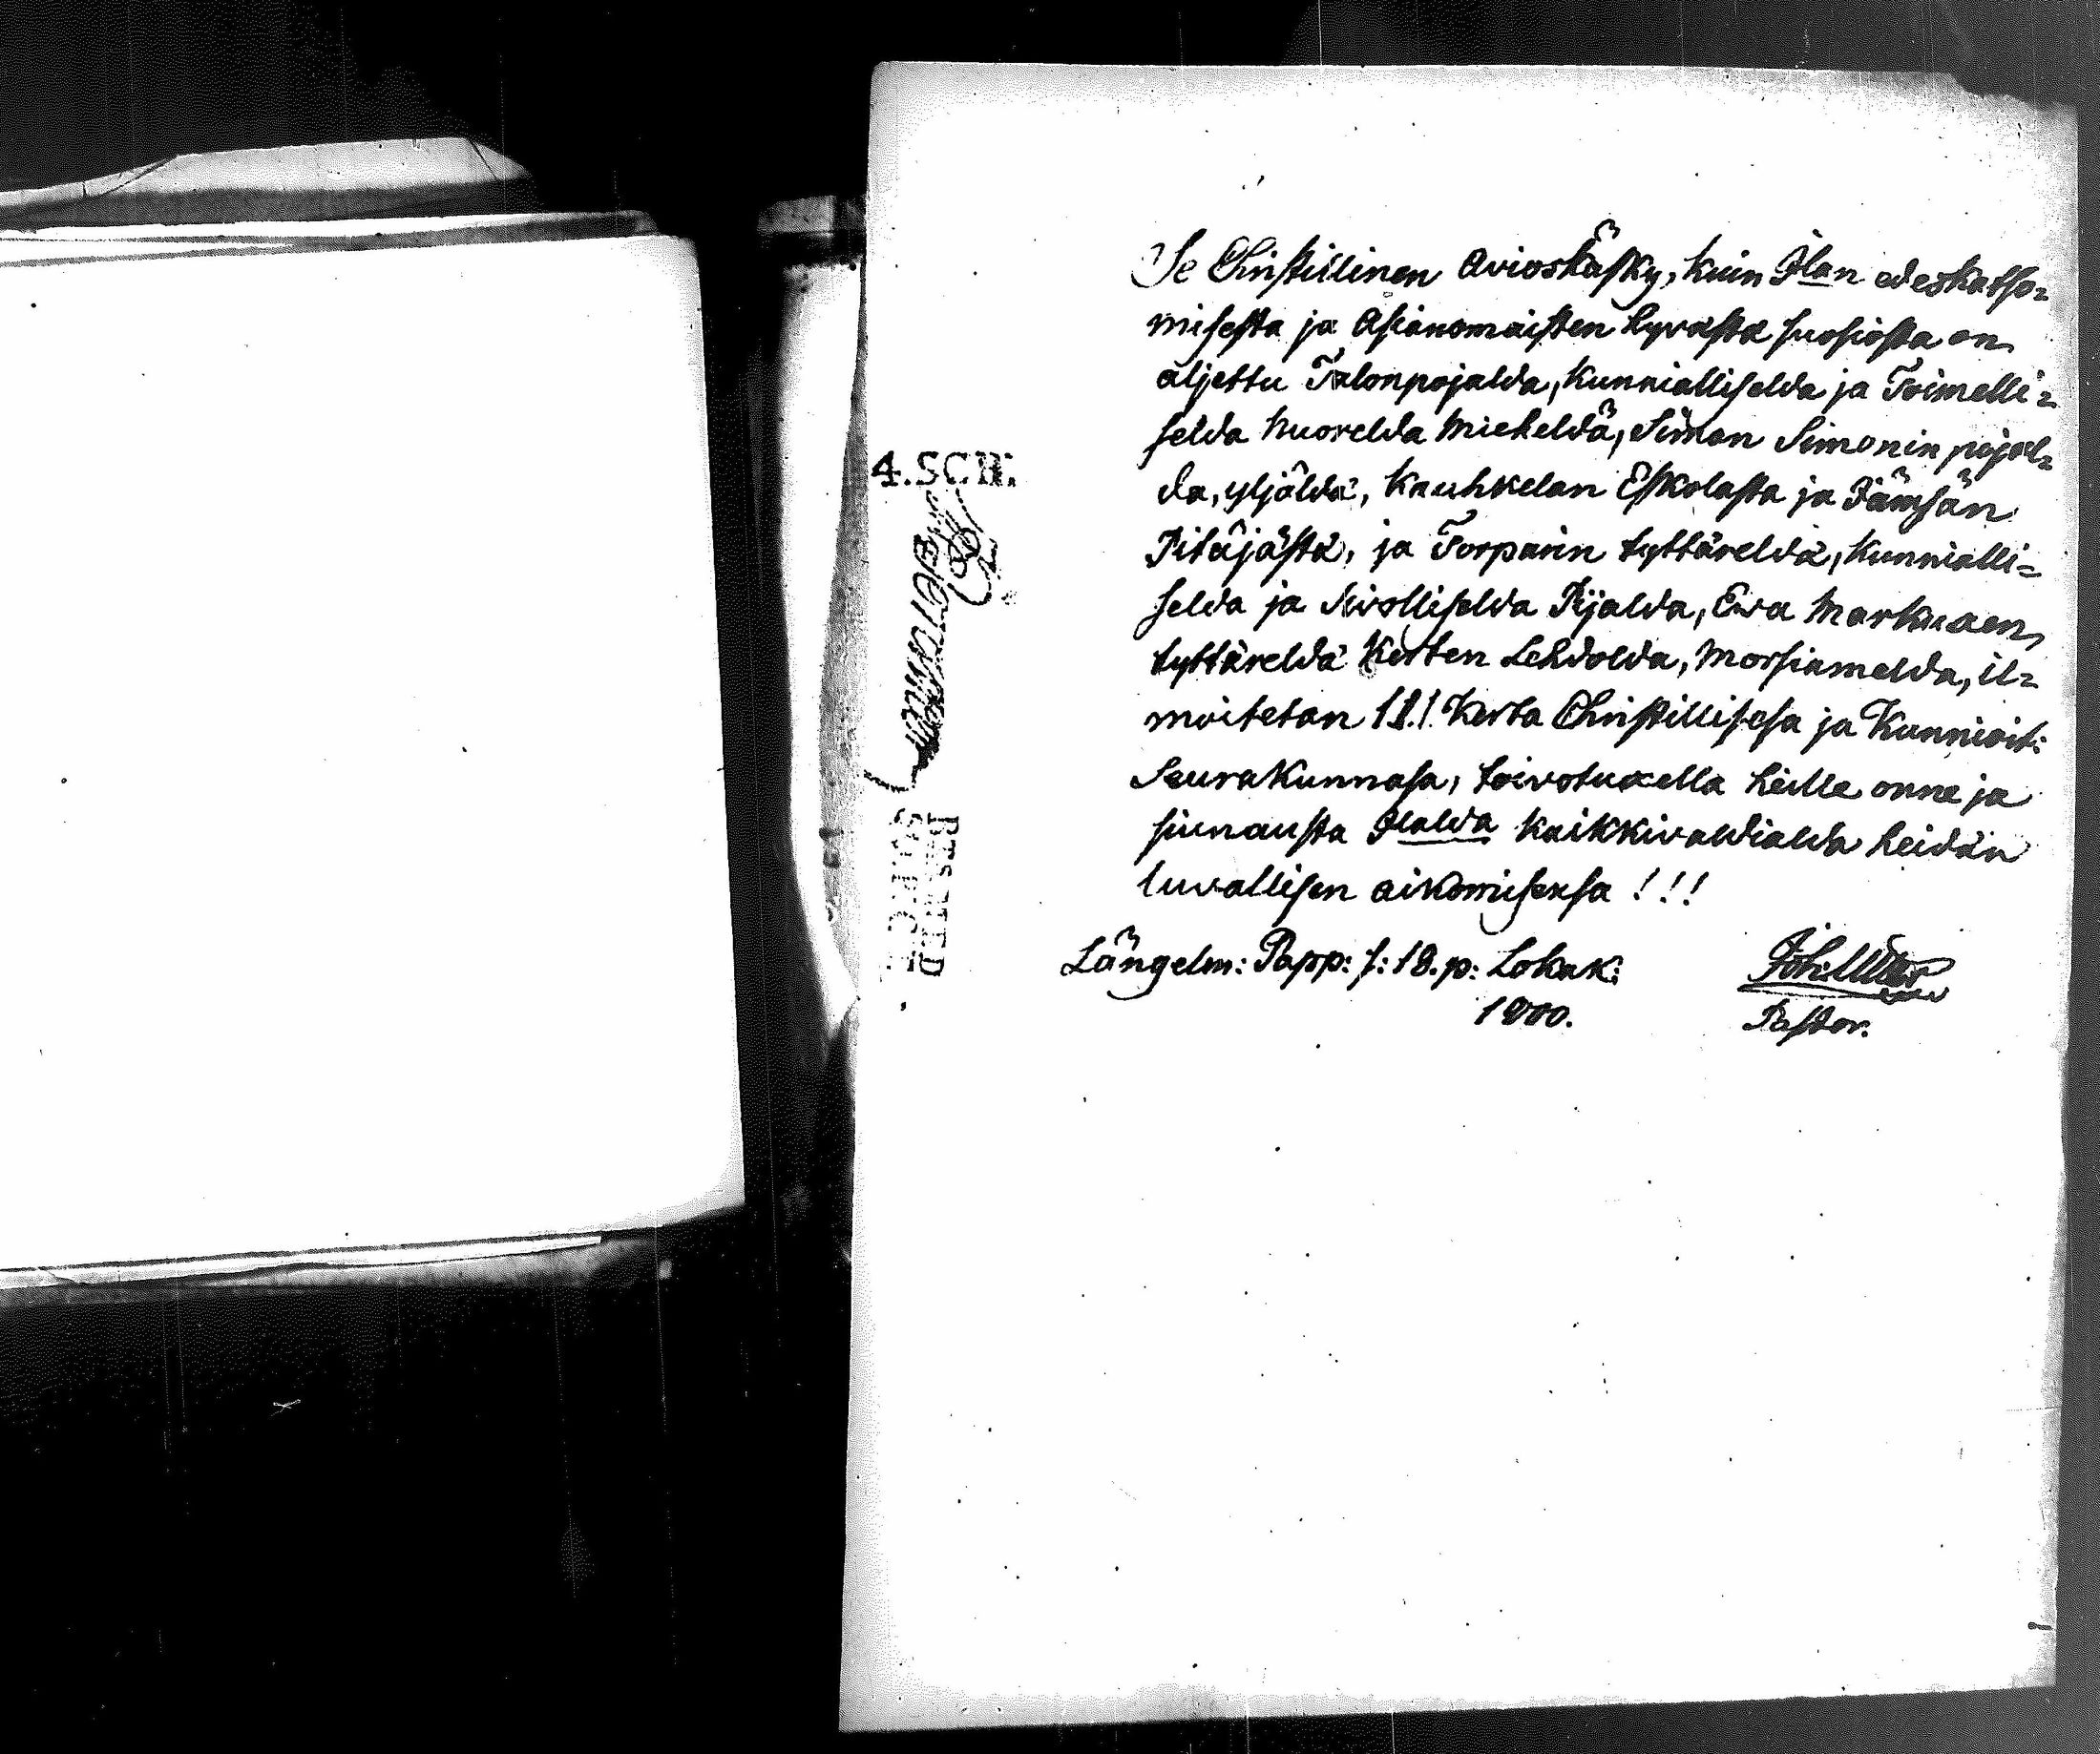 Se Christillinen Avioskäsky, kuin Jlan edeskatso=
misesta ja Asianomaisten hyvästä suosiosta on
aljettu Talonpojalda, kunnialliselda ja Toimelli=
selda Nuorelda Mieheldä, Siman Simonin pojal=
da, yljäldä, Kauhkelan Eskolasta ja Jämsän
Pitäjästä, ja Torparin tyttäreldä, kunnialli=
selda ja Sivollliselda Pijalda, Ewa Markuxen
tyttäreldä Kerten Lehdolda, Morsiamelda, il=
moitetan 1 Kerta Christillisesä ja Kunnioit:
Seurakunnasa, toivotuxella heille onne ja
siunausta Jlalda kaikkivaldialda heidän
luvallisen aikomisensa ! ! !
Längelm: Papp: s: 18. p: Lokak:
1800.
Pastor.
4. SCH.